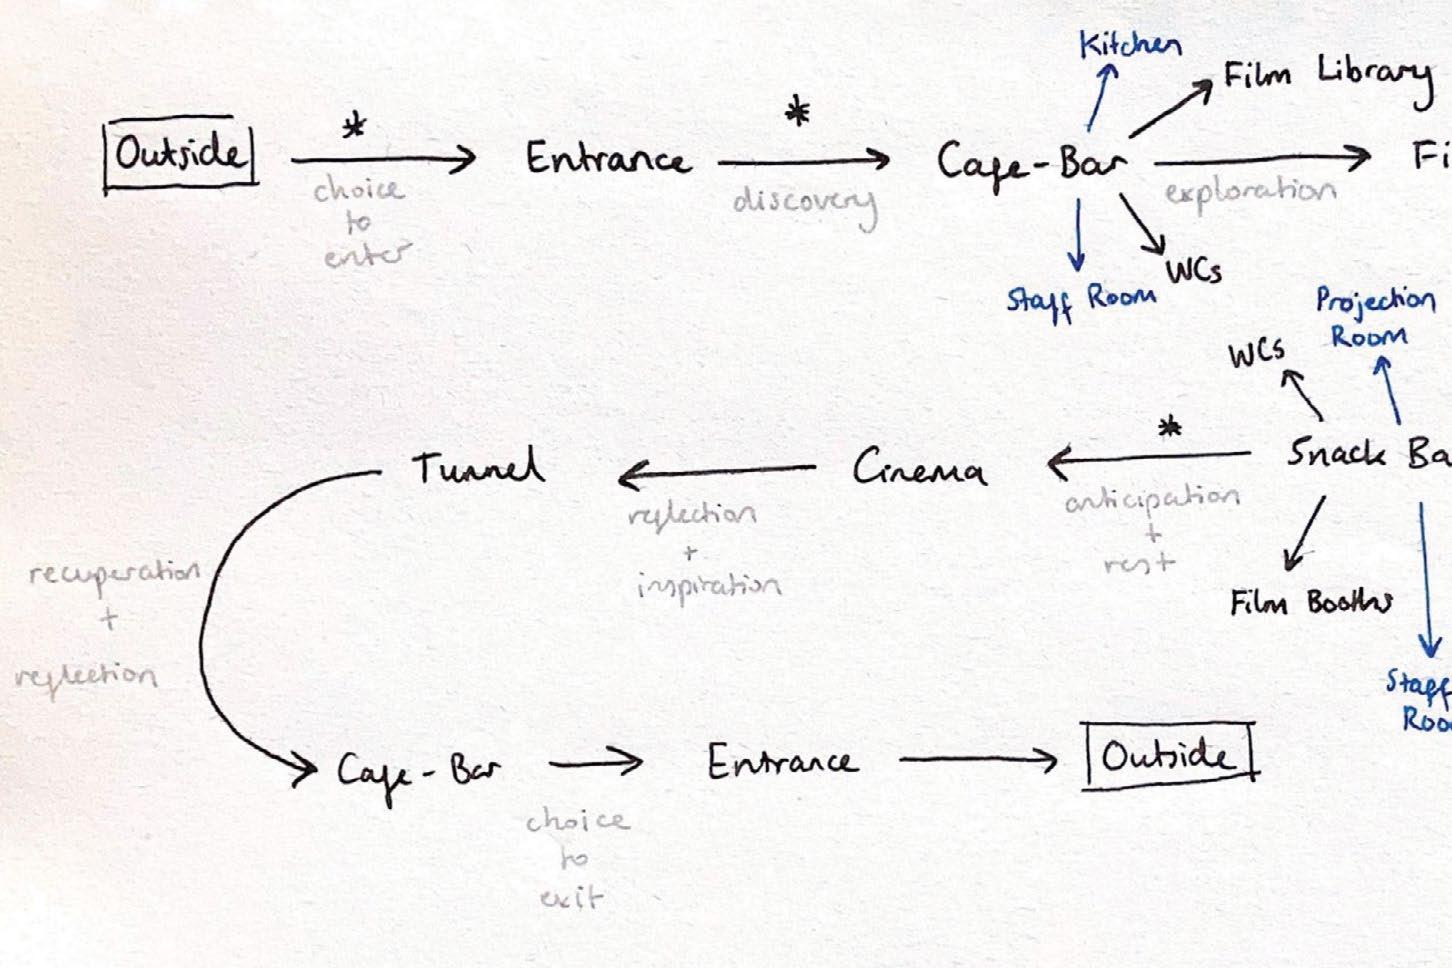 Kitchen
Film Library
*
*
Outside
Entrance
Cafe-Bar
Fi
choice
to
enter
discovery
exploration
WCs
Staff Room
Projection
Room
WCs
*
Tunnel
Cinema
Snack Ba
reflection
+
inspiration
anticipation
+
rest
recuperation
+
reflection
Film Booths
Staff
Roo
Cafe-Bar
Entrance
Outside
choice
to
exit